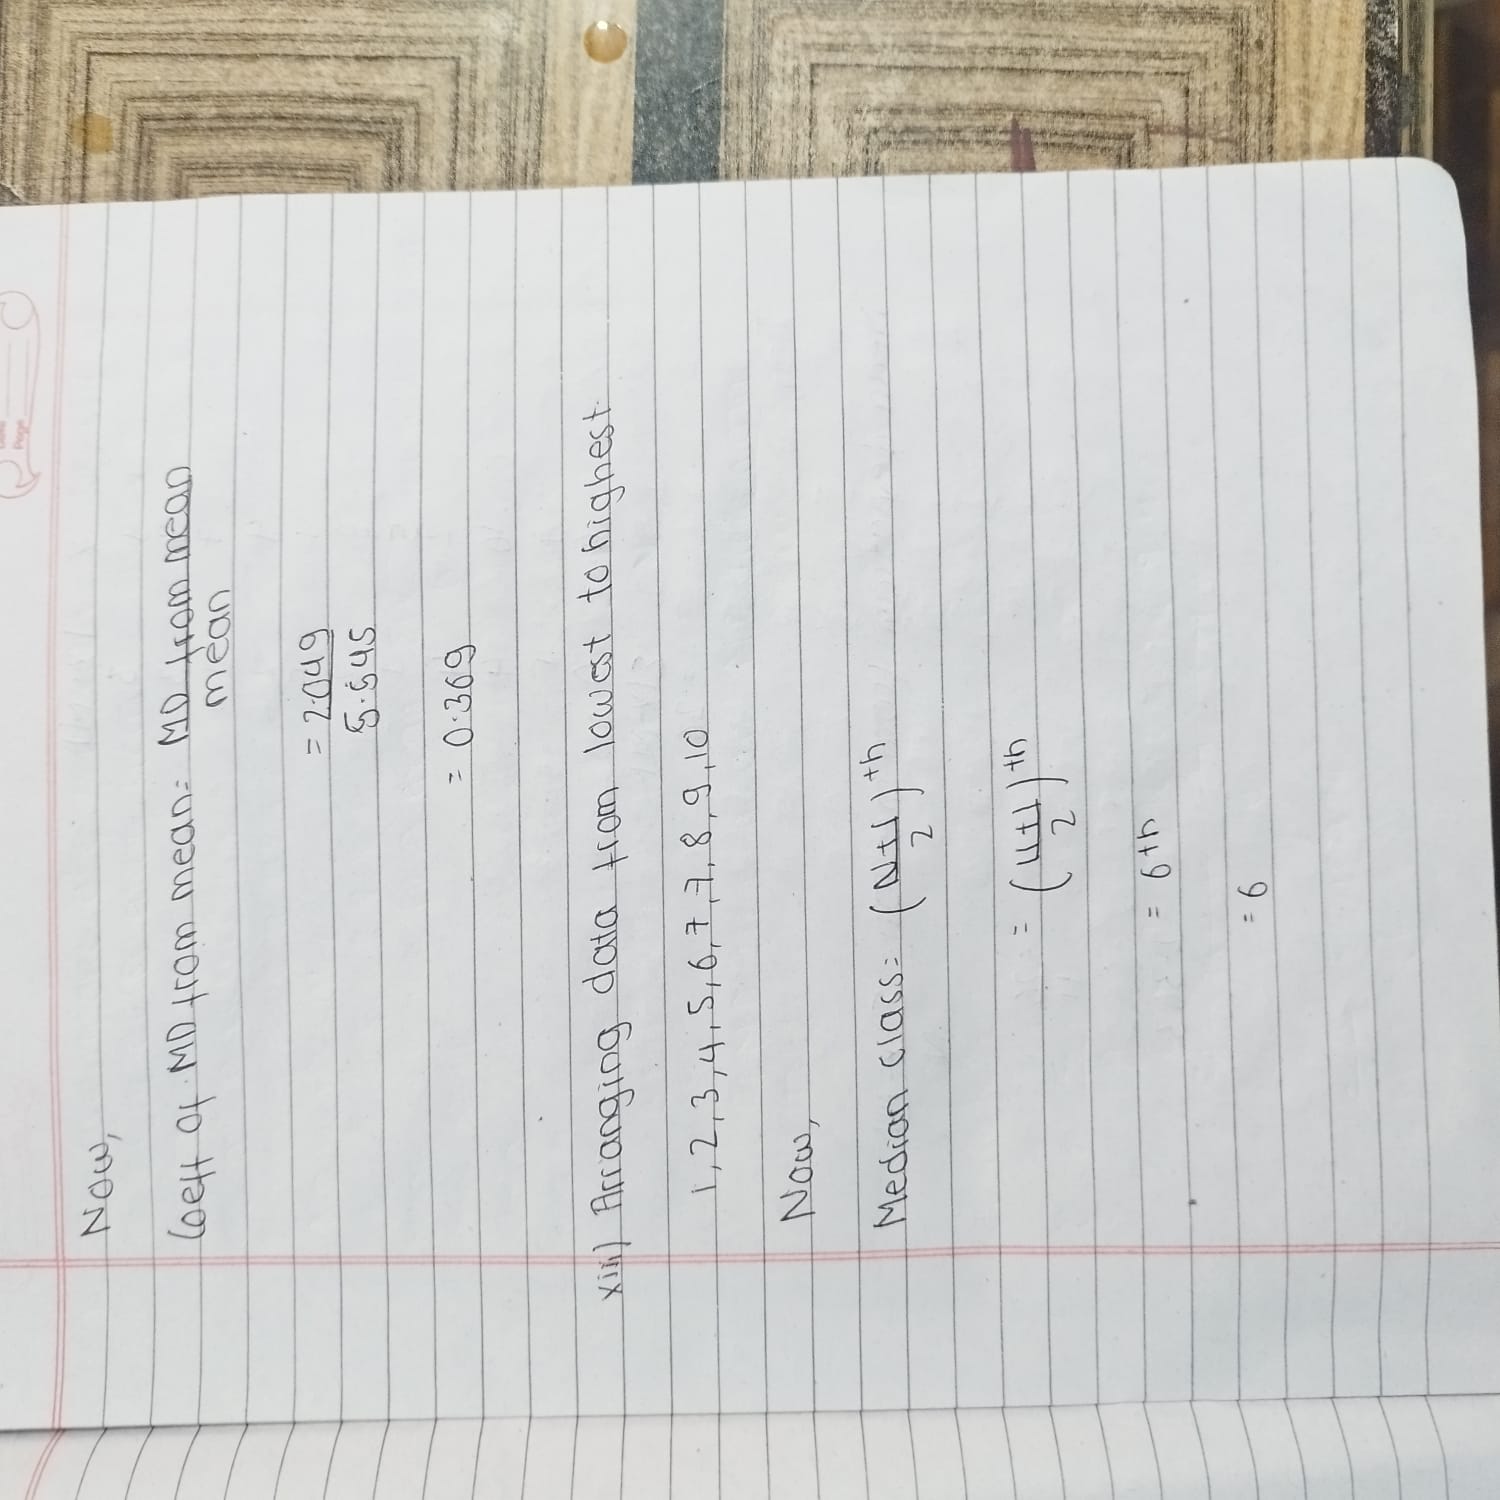 Page
Now,
Coeff of MD from mean = MD from mean
mean
= 2.049
5.545
= 0.369
xiii) Arranging data from lowest to highest
1, 2, 3, 4, 5, 6, 7, 7, 8, 9, 10
Now,
Median class = (N+1
2)th
= (11+1
2)th
= 6th
= 6